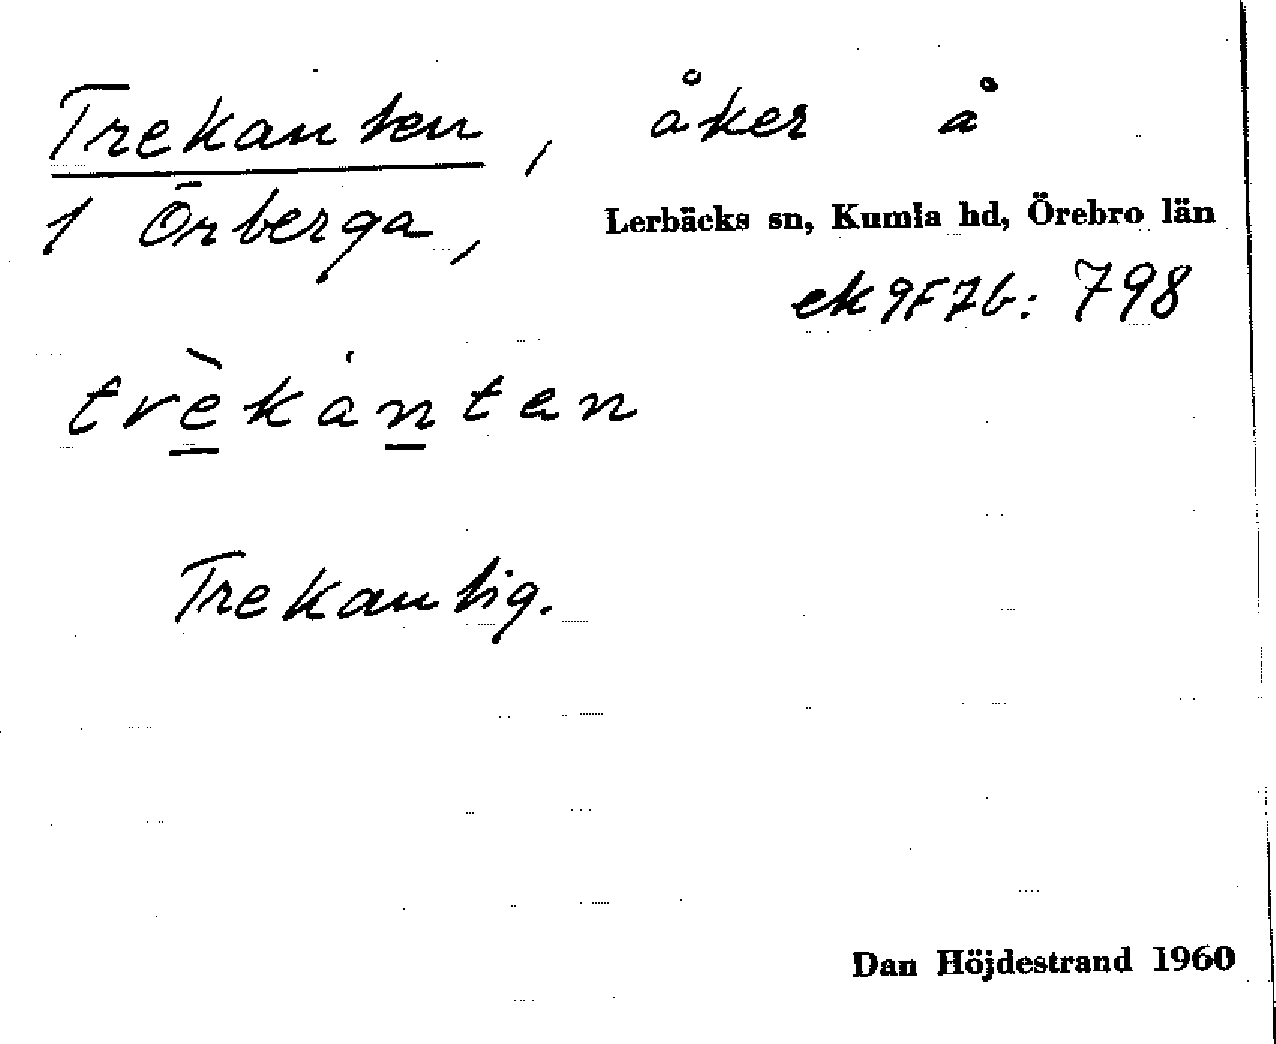 Trekanten, åker å
1 Örberga, Lerbäcks sn, Kumla hd, Örebro län
ek 9F7b: 798
trèkánten
Trekantig.
Dan Höjdestrand 1960